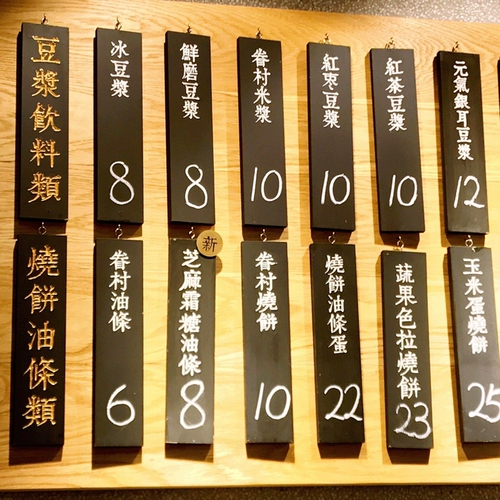 豆漿飲料類
冰豆漿
8
鮮磨豆漿
8
眷村米漿
10
紅枣豆漿
10
紅茶豆漿
10
元氣銀耳豆漿
12
燒餅油條類
眷村油條
6
新
芝麻霜糖油條
8
眷村燒餅
10
燒餅油條蛋
22
蔬果色拉燒餅
23
玉米蛋燒餅
25